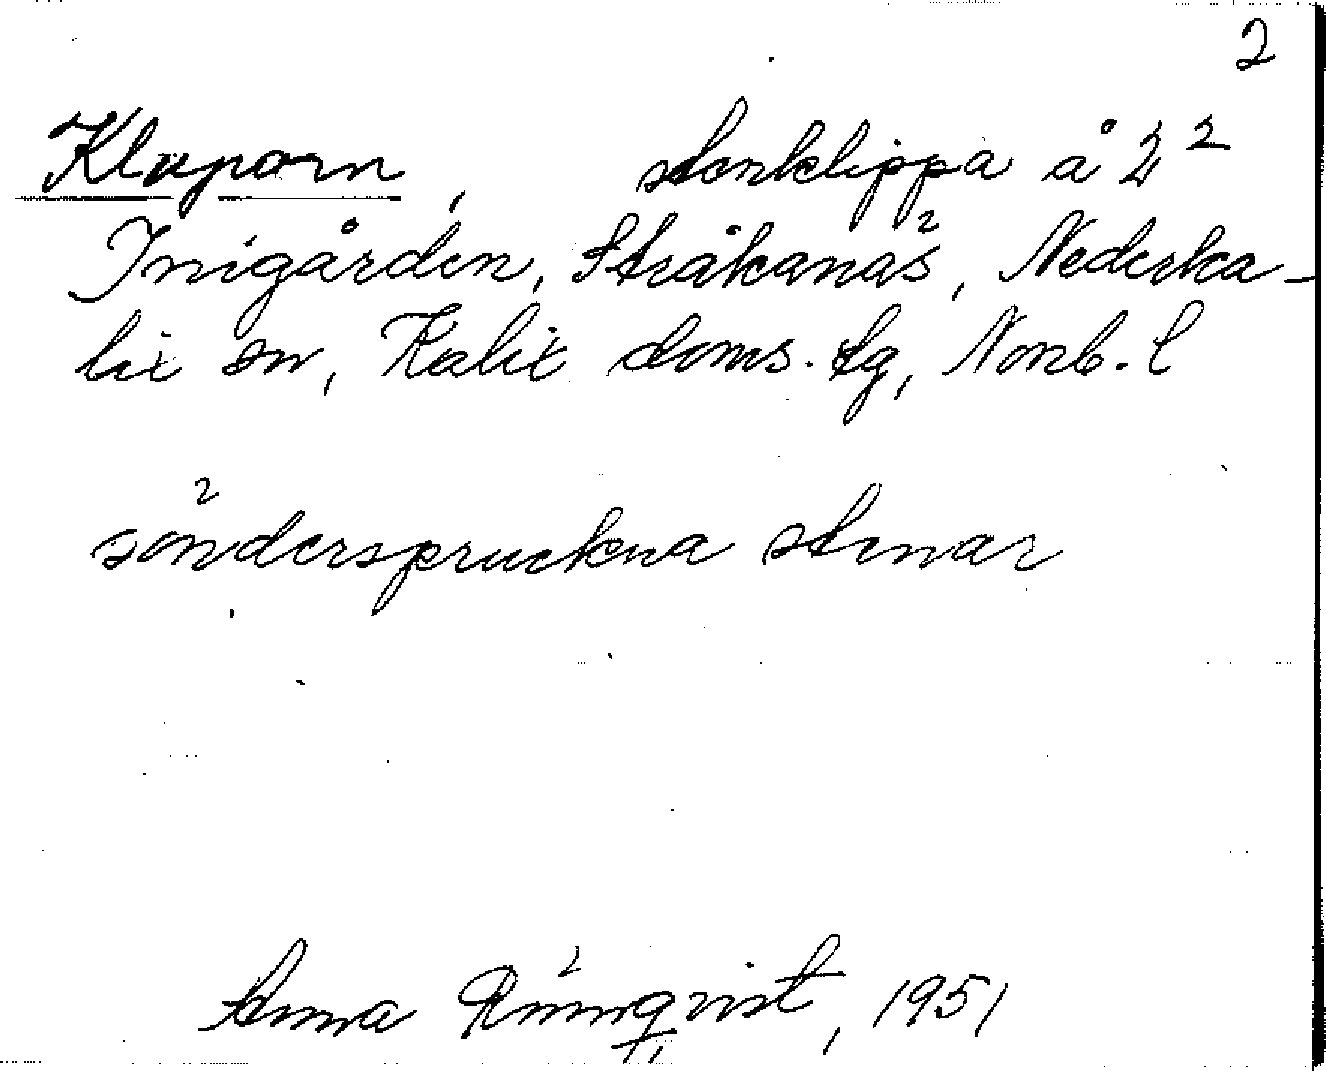 2
Kluporn, stenklippa å 2²
Inigården, Stråkanäs, Nederka-
lix sn, Kalix doms. tg, Norrb. l
sönderspruckna stenar
Anna Rönnqvist, 1951